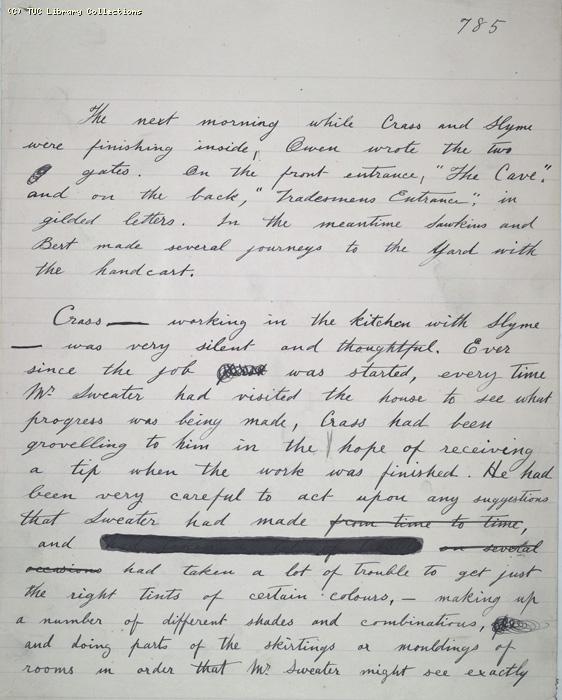 (C) TUC Library Collections
785
The next morning while Crass and Slyme
were finishing inside, Owen wrote the two
gates. On the front entrance, "The Cave".
and on the back, "Tradesmens Entrance", in
gilded letters. In the meantime Sawkins and
Bert made several journeys to the Yard with
the handcart.
Crass — working in the kitchen with Slyme
— was very silent and thoughtful. Ever
since the job was started, every time
Mr Sweater had visited the house to see what
progress was being made, Crass had been
grovelling to him in the hope of receiving
a tip when the work was finished. He had
been very careful to act upon any suggestions
that Sweater had made from time to time,
and on several
occasions had taken a lot of trouble to get just
the right tints of certain colours, — making up
a number of different shades and combinations,
and doing parts of the skirtings or mouldings of
rooms in order that Mr Sweater might see exactly